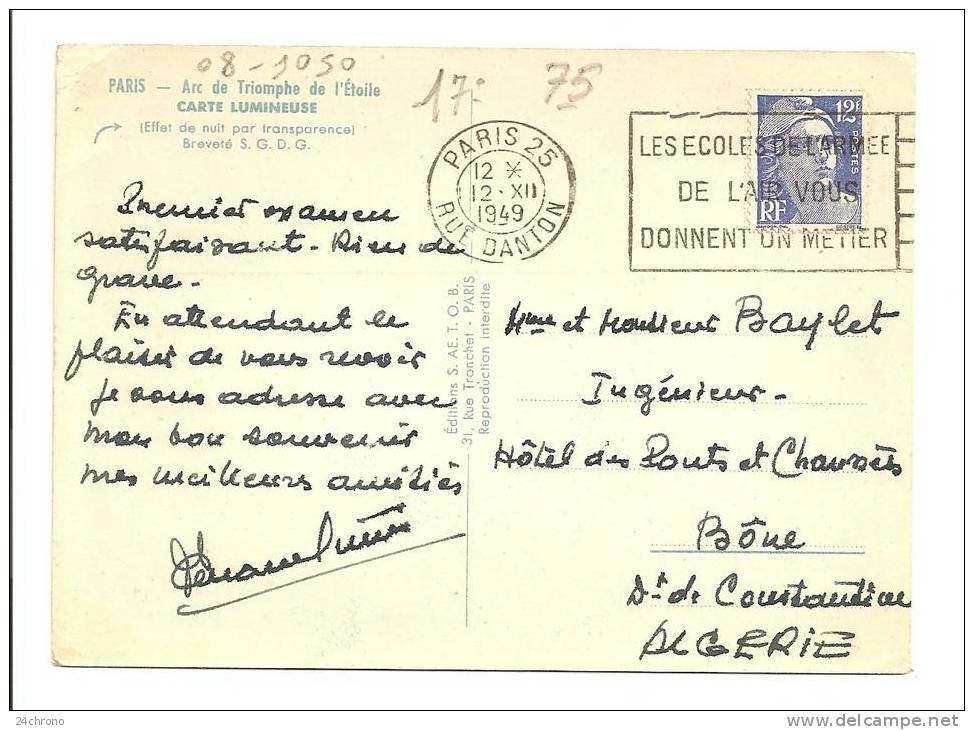 08-1050
17.-
75
PARIS — Arc de Triomphe de l'Étoile
CARTE LUMINEUSE
(Effet de nuit par transparence)
Breveté S. G. D. G.
PARIS 25
12 *
12 · XII
1949
RUE DANTON
LES ECOLES DE L'ARMEE
DE L'AIR VOUS
DONNENT UN METIER
12F
POSTES
RF
Premier examen
satisfaisant - Rien de
grave.
En attendant le
plaisir de vous revoir
je vous adresse avec
mon bon souvenir
mes meilleures amitiés
Éditions S. AE. T. O. B.
31, Rue Tronchet - PARIS
Reproduction interdite
Mme et Monsieur Baylet
Ingénieur -
Hôtel des Ponts et Chaussées
Bône
Dt de Constantine
ALGERIE
24chrono
www.delcampe.net